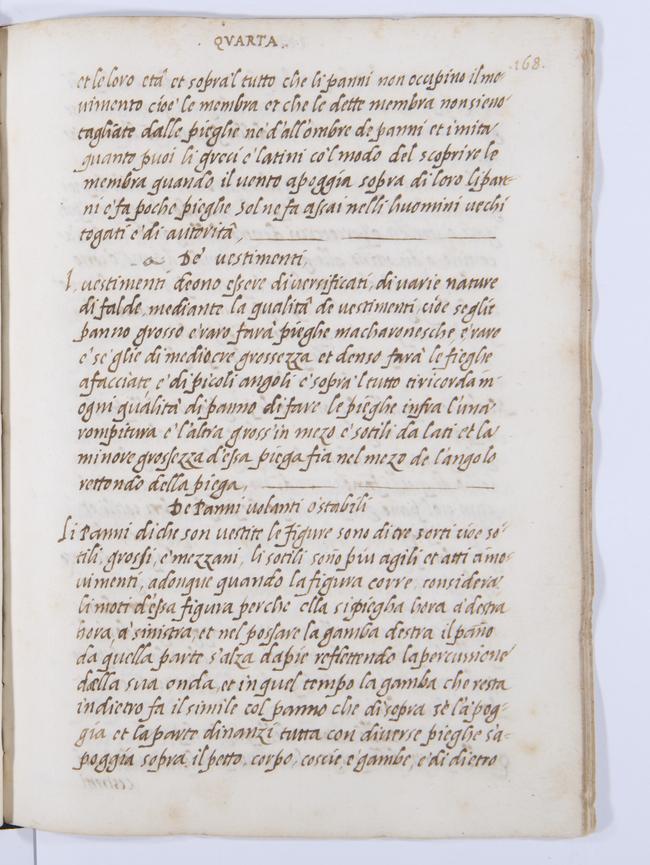 QVARTA.
.168.
et le loro età et sopra'l tutto che li panni non occupino il mo-
uimento cioe' le membra et che le dette membra non sieno
tagliate dalle pieghe ne' d'all'ombre de panni et imita
quanto puoi li greci e' latini co'l modo del scoprire le
membra quando il uento apoggia sopra di loro li pan-
ni e' fa poche pieghe sol ne fa assai nelli huomini uechi
togati e' di autorità,
De' uestimenti
I, uestimenti deono essere diuersificati, di uarie nature
di falde, mediante la qualità de uestimenti, cioe se glie
panno grosso e' raro farà pieghe macharonesche e' rare
e' se' glie di mediocre grossezza et denso farà le fieghe
afacciate e' di picoli angoli e' sopra'l tutto ti ricorda in
ogni qualità di panno di fare le pieghe infra l'una
rompitura e' l'altra, gross'in mezo e' sotili da lati et la
minore grossezza d'essa piega fia nel mezo de l'angolo
rettondo della piega,
De Panni uolanti o' stabili
Li Panni di che son uestite le figure sono di tre sorti cioe so-
tili, grossi, e' mezzani, li sotili sono piu agili et atti a' mo-
uimenti, adonque quando la figura corre, considera
li moti d'essa figura perche ella si piegha hora a' destra
hora, a' sinistra, et nel possare la gamba destra il pano
da quella parte s'alza da pie reflettendo la percusione
della sua onda, et in quel tempo la gamba che resta
indietro fa il simile col panno che di sopra se' l'apog-
gia et la parte dinanzi tutta con diuerse pieghe s'a-
poggia sopra il petto, corpo, coscie, e' gambe, e' di dietro